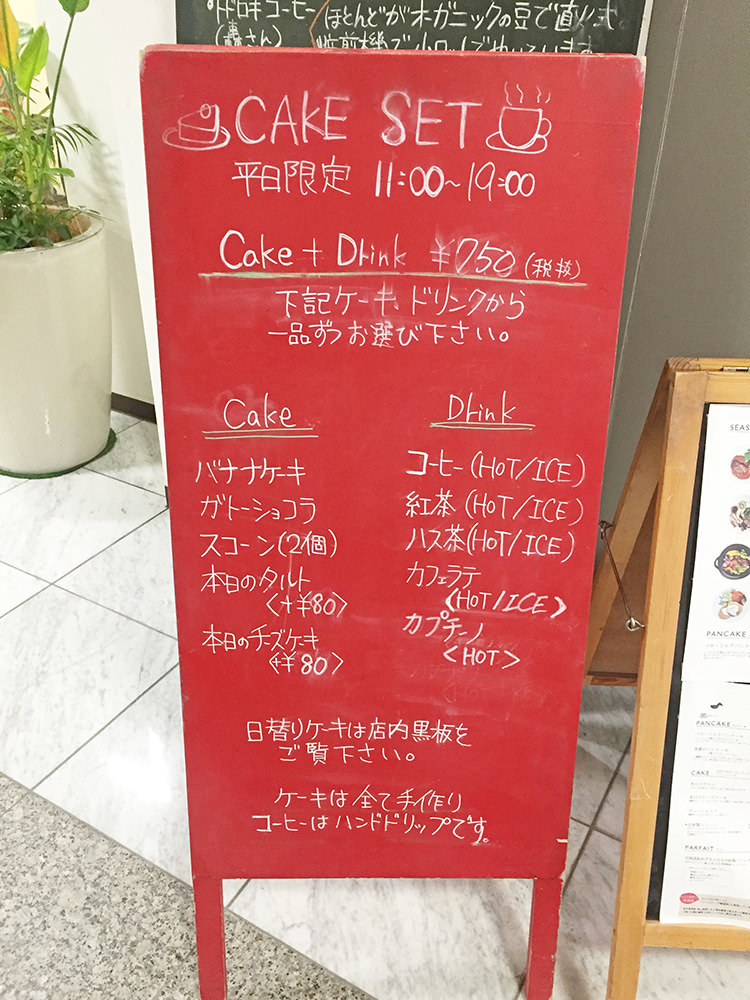 ほとんどがオーガニックの豆で直火式
CAKE SET
平日限定 11:00~19:00
Cake + Drink ¥750 (税抜)
下記ケーキ、ドリンクから
一品ずつお選び下さい。
Cake
バナナケーキ
ガトーショコラ
スコーン(2個)
本日のタルト
<+¥80>
本日のチーズケーキ
<+¥80>
Drink
コーヒー(HOT/ICE)
紅茶(HOT/ICE)
ハス茶(HOT/ICE)
カフェラテ
<HOT/ICE>
カプチーノ
<HOT>
日替りケーキは店内黒板を
ご覧下さい。
ケーキは全て手作り
コーヒーはハンドドリップです。
PANCAKE
PANCAKE
CAKE
PARFAIT